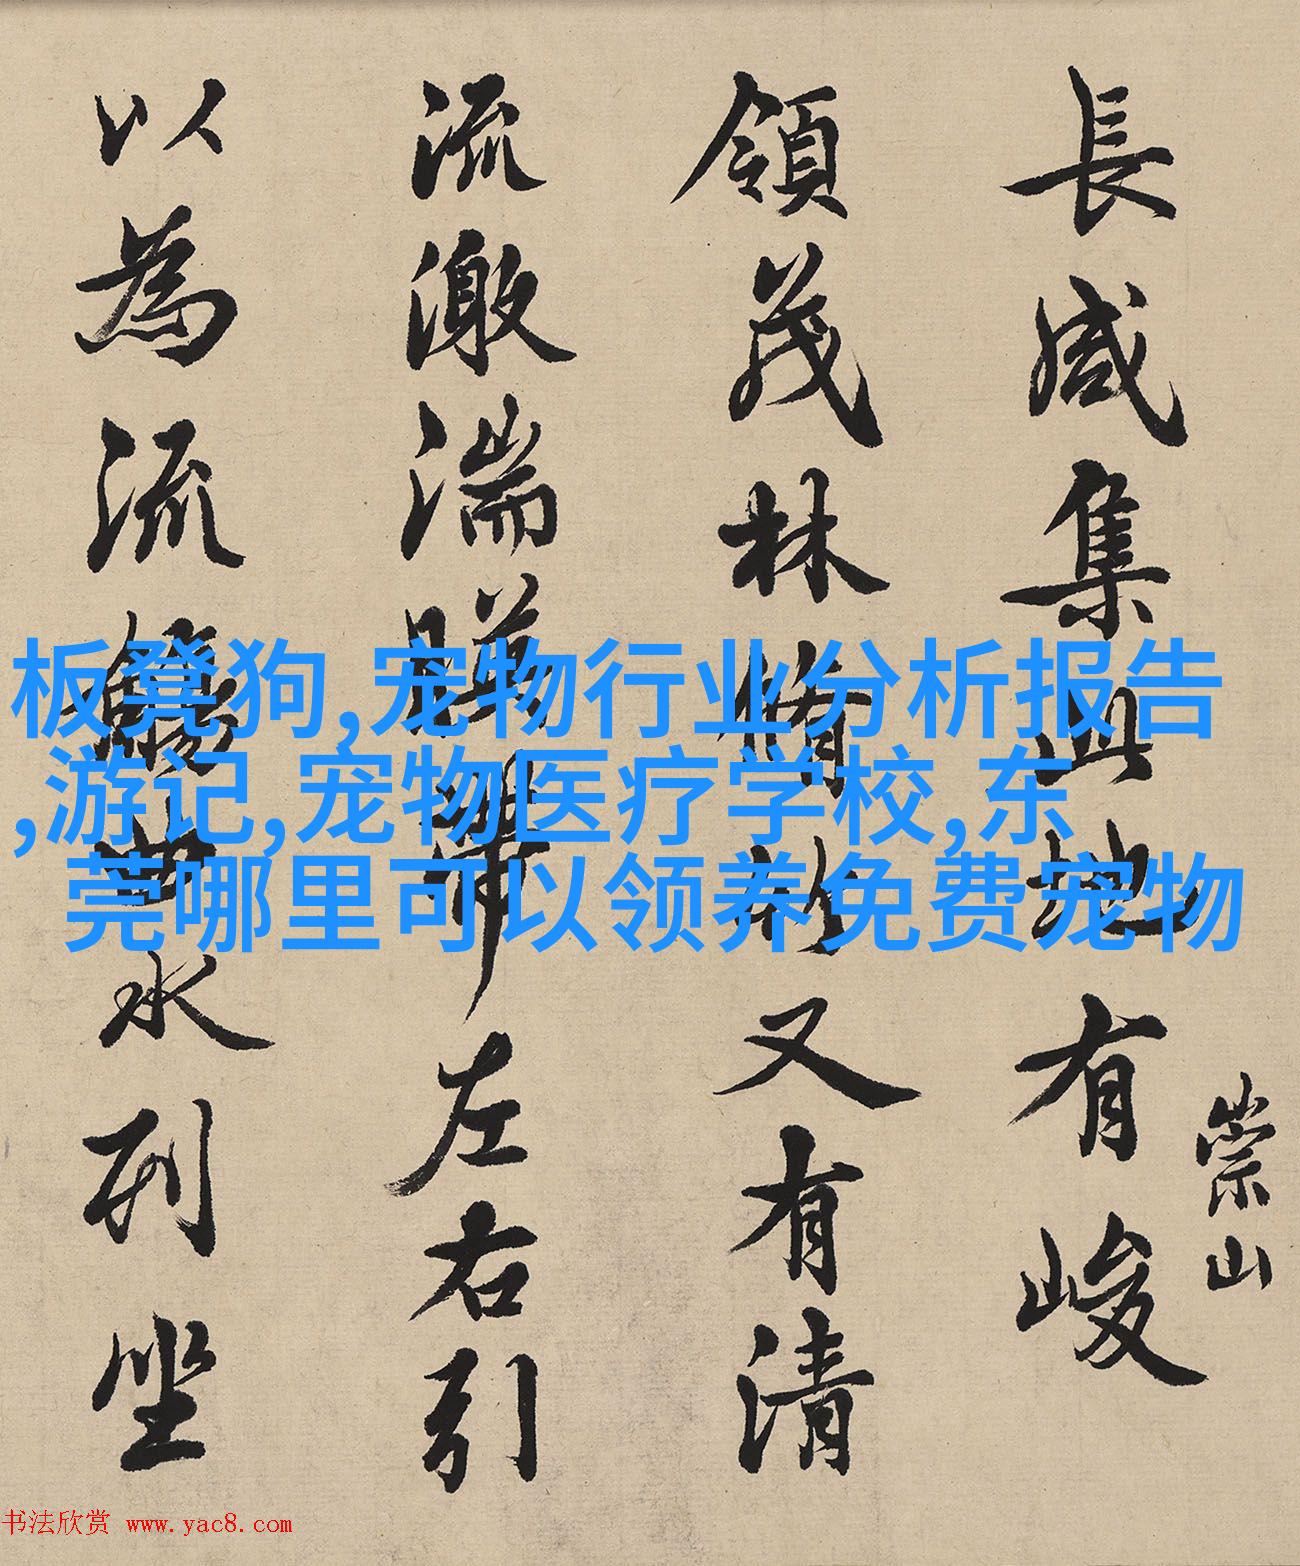 長咸集此地有峻
崇山
領茂林脩竹又有清
流激湍暎帶左右引
以為流觴曲水列坐
板凳狗,宠物行业分析报告
,游记,宠物医疗学校,东
莞哪里可以领养免费宠物
书法欣赏 www.yac8.com